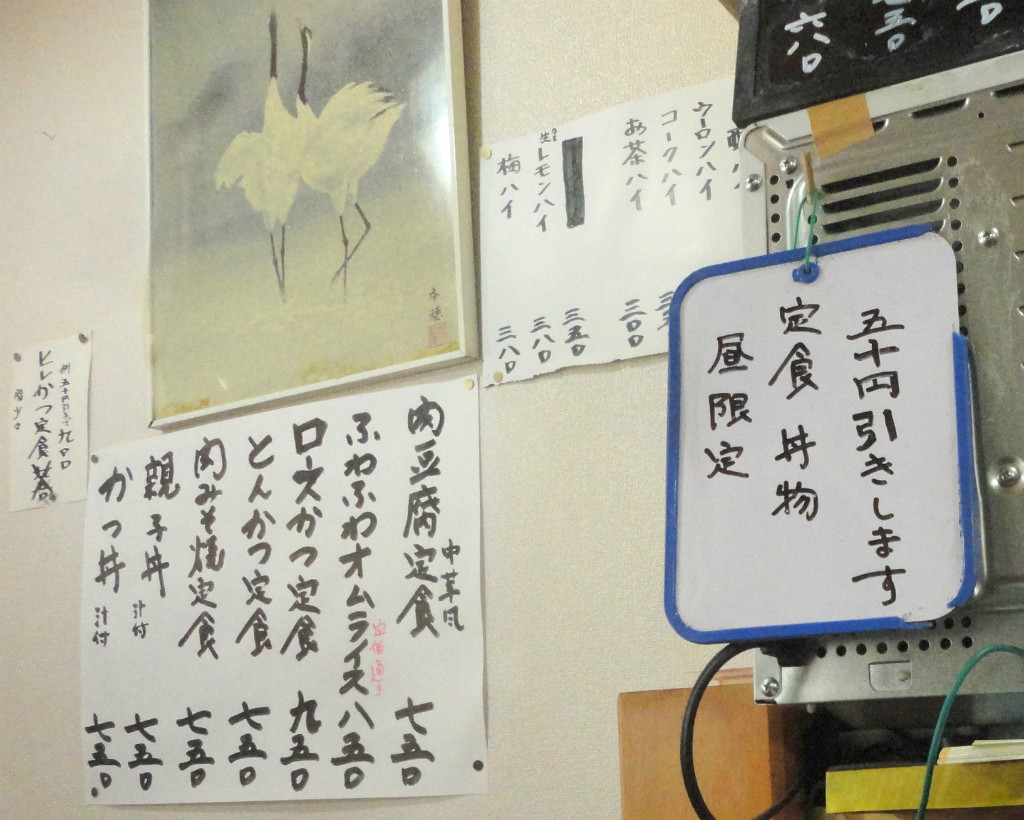 六八〇
ウーロンハイ
コークハイ
お茶ハイ 三〇〇
三五〇
生レモンハイ 三八〇
梅ハイ 三八〇
五十円引きします
定食 丼物
昼限定
九〇〇
ヒレかつ定食
肉豆腐定食 七五〇
中華風
ふわふわオムライス 八五〇
定価通り
ロースかつ定食 九五〇
とんかつ定食 七五〇
肉みそ焼定食 七五〇
親子丼 汁付 七五〇
かつ丼 汁付 七五〇